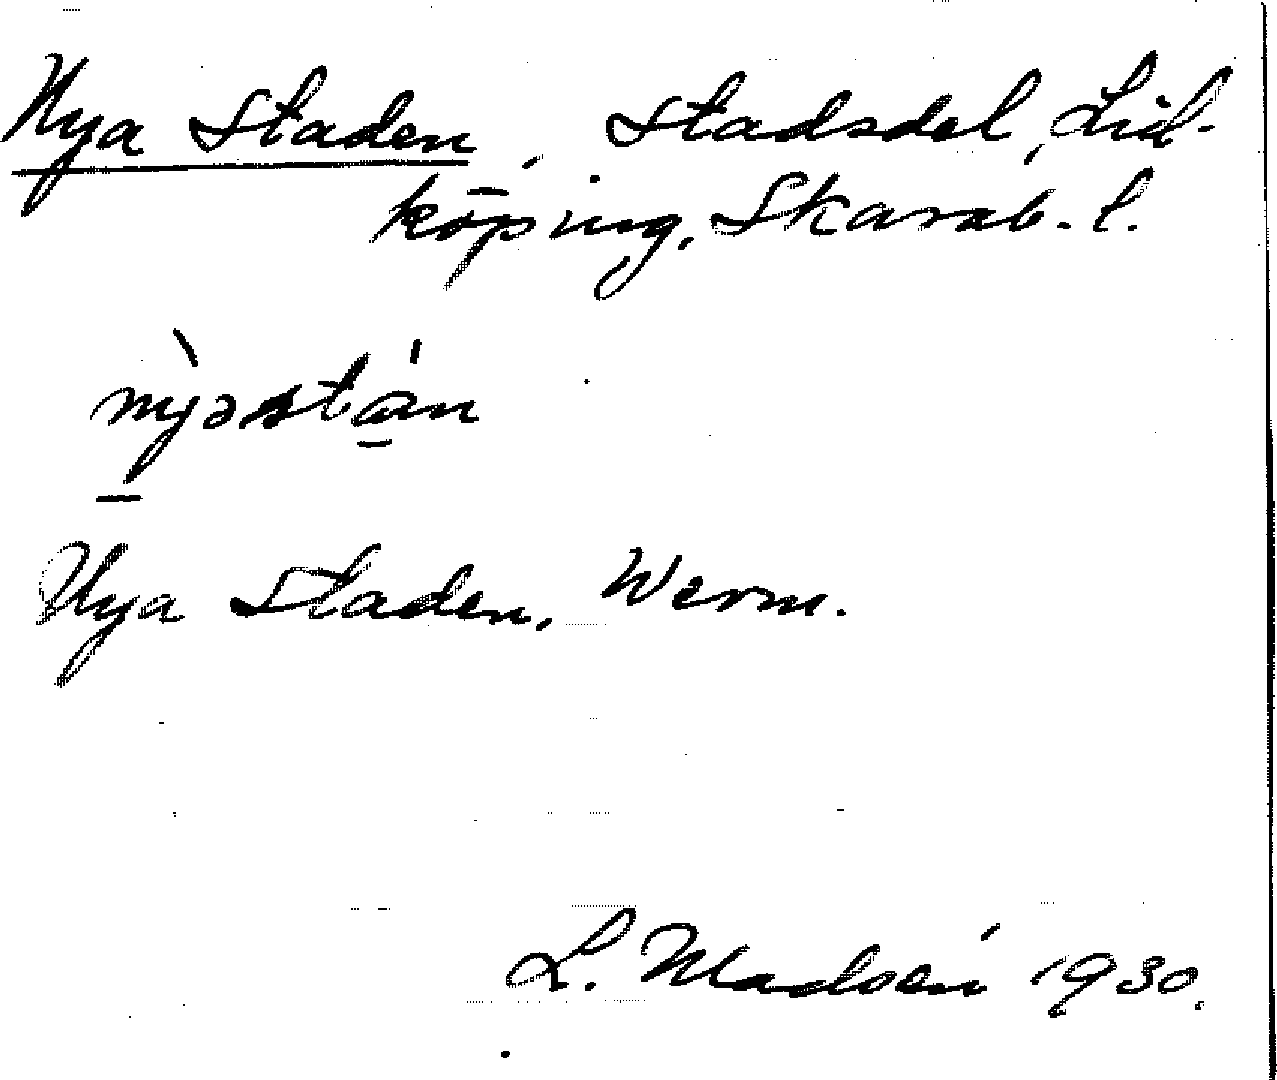 Nya Staden, Stadsdel, Lid-
köping, Skarab. l.
nỳastán
Nya Staden, Werm.
L. Madsén 1930.